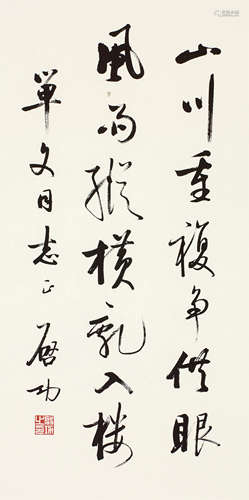 山川重複争供眼
風雨縱横亂入楼
單文同志正 啓功